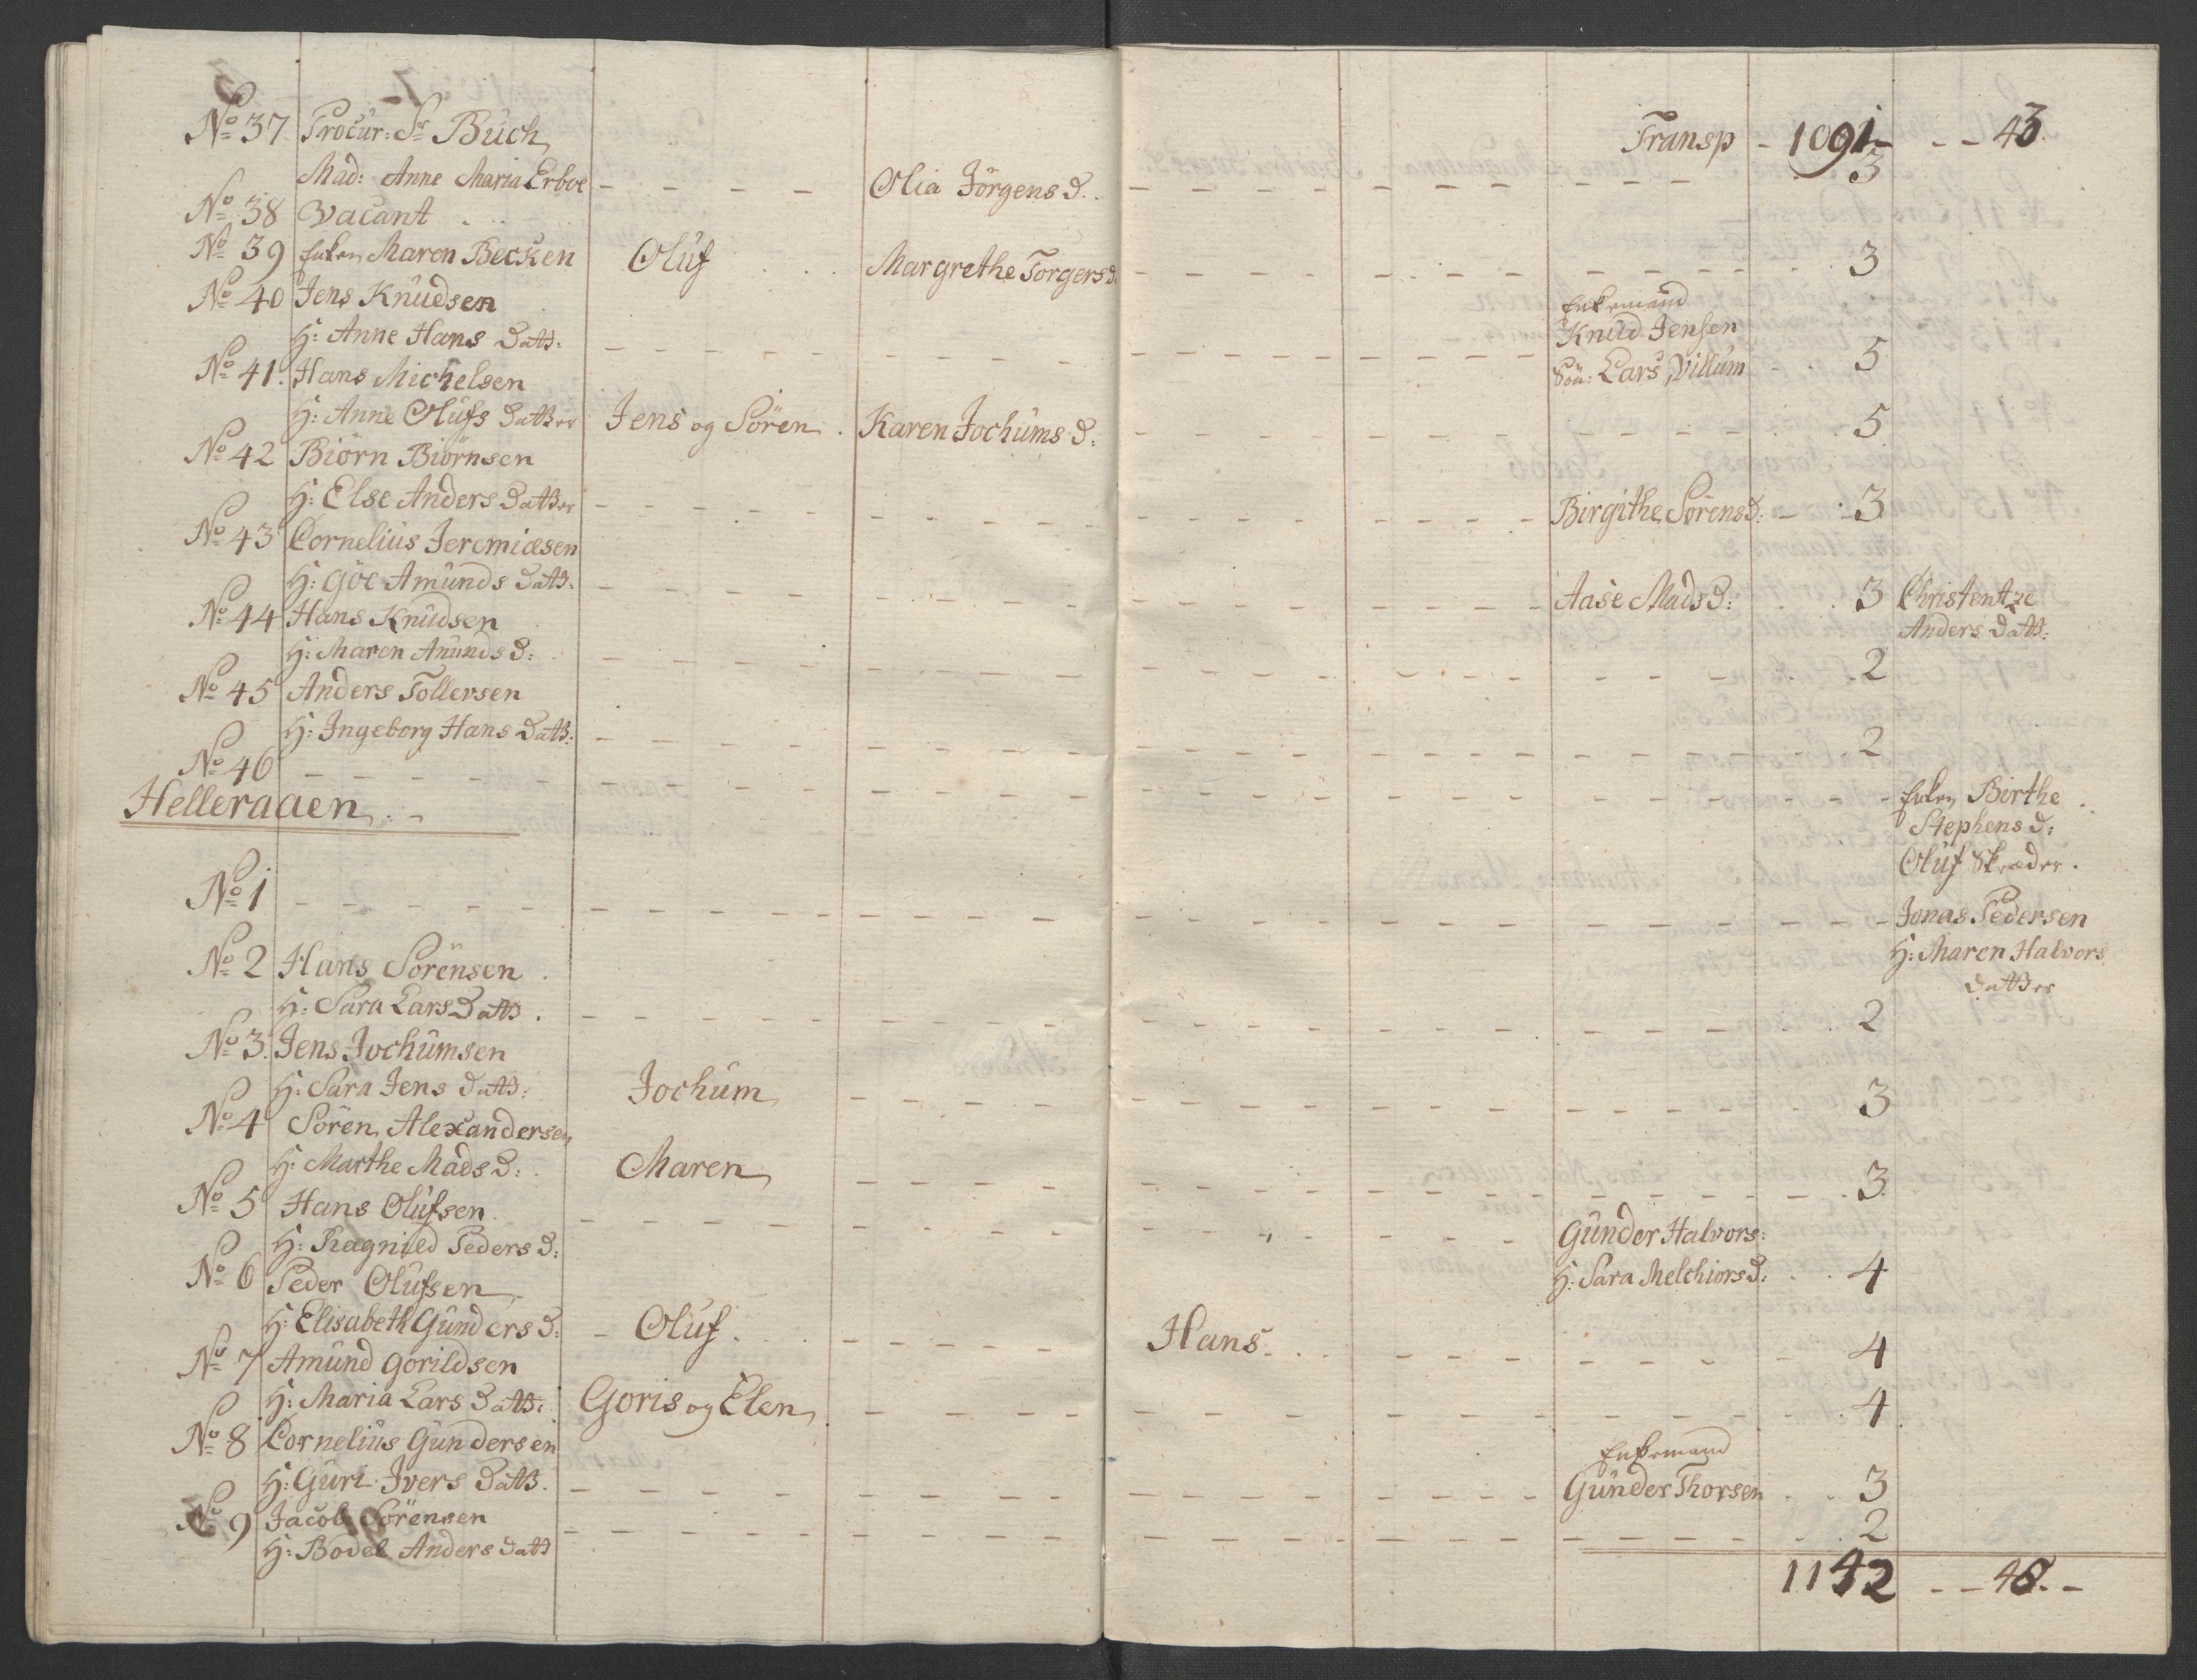 Transp - 1091 - - - 43.
No 37. Procur: Sr Buch
Mad: Anne Maria Erboe - - - - Olia Jörgens D. - - - 3
No 38 Vacant
No 39 Enken Maren Becken Oluf . . . Margrethe Torgers D. - - - 3
No 40 Jens Knudsen Enkemand
H: Anne Hans Datt: - - - Knud Jensen
Sön: Lars, Villum - 5
No 41. Hans Michelsen
H: Anne Olufs Datter Jens og Sören . Karen Jochums D: - - - 5
No 42 Biörn Biörnsen
H: Else Anders Datter - - - Birgithe Sörens D: - 3
No 43 Cornelius Jeremiæsen
H: Göe Amunds Datt: - - - Aase Mads D: . . 3 Christentze
Anders Datt:
No 44 Hans Knudsen
H: Maren Anunds D: - - - 2
No 45 Anders Tollersen
H: Ingeborg Hans Datt: - - - 2
No 46 - - - Enken Birthe
Stephens D:
Helleraaen . -
Oluf Skræder.
No 1 - - - Jonas Pedersen
H: Maren Halvors
Datter
No 2 Hans Sörensen
H: Sara Lars Datt . - - - 2
No 3. Jens Jochumsen
H: Sara Jens Datt: Jochum - - - 3
No 4 Sören Alexandersen
H: Marthe Mads D: Maren - - - 3
No 5 Hans Olufsen - - - Gunder Halvors:
H: Ragnild Peders D: H: Sara Melchiors D: . . 4
No 6 Peder Olufsen
H: Elisabeth Gunders D: - Oluf . - - - Hans - - - 4
No 7 Amund Gorildsen
H: Maria Lars Datt: Goris og Elen - - - 4
No 8 Cornelius Gundersen Enkemand
H: Guri Ivers Datt. - - - Gunder Thorsen . . 3
No 9 Jacob Sörensen - - - 2
H: Bodel Anders Datt
1142 - - 48. -